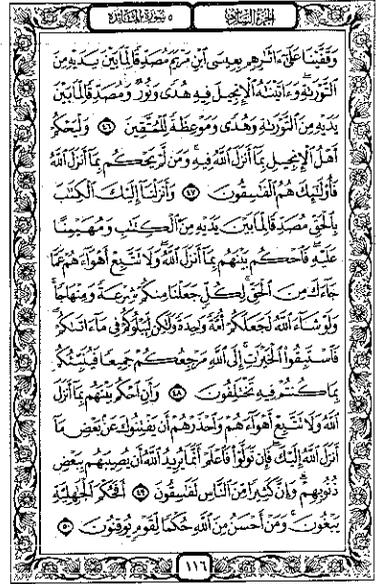 الجزء السادس
٥ سورة المائدة
وَقَفَّيْنَا عَلَىٰٓ ءَاثَـٰرِهِم بِعِيسَى ٱبْنِ مَرْيَمَ مُصَدِّقًا لِّمَا بَيْنَ يَدَيْهِ مِنَ
ٱلتَّوْرَىٰةِ ۖ وَءَاتَيْنَـٰهُ ٱلْإِنجِيلَ فِيهِ هُدًى وَنُورٌ وَمُصَدِّقًا لِّمَا بَيْنَ
يَدَيْهِ مِنَ ٱلتَّوْرَىٰةِ وَهُدًى وَمَوْعِظَةً لِّلْمُتَّقِينَ ٤٦ وَلْيَحْكُمْ
أَهْلُ ٱلْإِنجِيلِ بِمَآ أَنزَلَ ٱللَّهُ فِيهِ ۚ وَمَن لَّمْ يَحْكُم بِمَآ أَنزَلَ ٱللَّهُ
فَأُو۟لَـٰٓئِكَ هُمُ ٱلْفَـٰسِقُونَ ٤٧ وَأَنزَلْنَآ إِلَيْكَ ٱلْكِتَـٰبَ
بِٱلْحَقِّ مُصَدِّقًا لِّمَا بَيْنَ يَدَيْهِ مِنَ ٱلْكِتَـٰبِ وَمُهَيْمِنًا
عَلَيْهِ ۖ فَٱحْكُم بَيْنَهُم بِمَآ أَنزَلَ ٱللَّهُ ۖ وَلَا تَتَّبِعْ أَهْوَآءَهُمْ عَمَّا
جَآءَكَ مِنَ ٱلْحَقِّ ۚ لِكُلٍّ جَعَلْنَا مِنكُمْ شِرْعَةً وَمِنْهَاجًا ۚ
وَلَوْ شَآءَ ٱللَّهُ لَجَعَلَكُمْ أُمَّةً وَٰحِدَةً وَلَـٰكِن لِّيَبْلُوَكُمْ فِى مَآ ءَاتَىٰكُمْ ۖ
فَٱسْتَبِقُوا۟ ٱلْخَيْرَٰتِ ۚ إِلَى ٱللَّهِ مَرْجِعُكُمْ جَمِيعًا فَيُنَبِّئُكُم
بِمَا كُنتُمْ فِيهِ تَخْتَلِفُونَ ٤٨ وَأَنِ ٱحْكُم بَيْنَهُم بِمَآ أَنزَلَ
ٱللَّهُ وَلَا تَتَّبِعْ أَهْوَآءَهُمْ وَٱحْذَرْهُمْ أَن يَفْتِنُوكَ عَنۢ بَعْضِ مَآ
أَنزَلَ ٱللَّهُ إِلَيْكَ ۖ فَإِن تَوَلَّوْا۟ فَٱعْلَمْ أَنَّمَا يُرِيدُ ٱللَّهُ أَن يُصِيبَهُم بِبَعْضِ
ذُنُوبِهِمْ ۗ وَإِنَّ كَثِيرًا مِّنَ ٱلنَّاسِ لَفَـٰسِقُونَ ٤٩ أَفَحُكْمَ ٱلْجَـٰهِلِيَّةِ
يَبْغُونَ ۚ وَمَنْ أَحْسَنُ مِنَ ٱللَّهِ حُكْمًا لِّقَوْمٍ يُوقِنُونَ ٥٠
١١٦